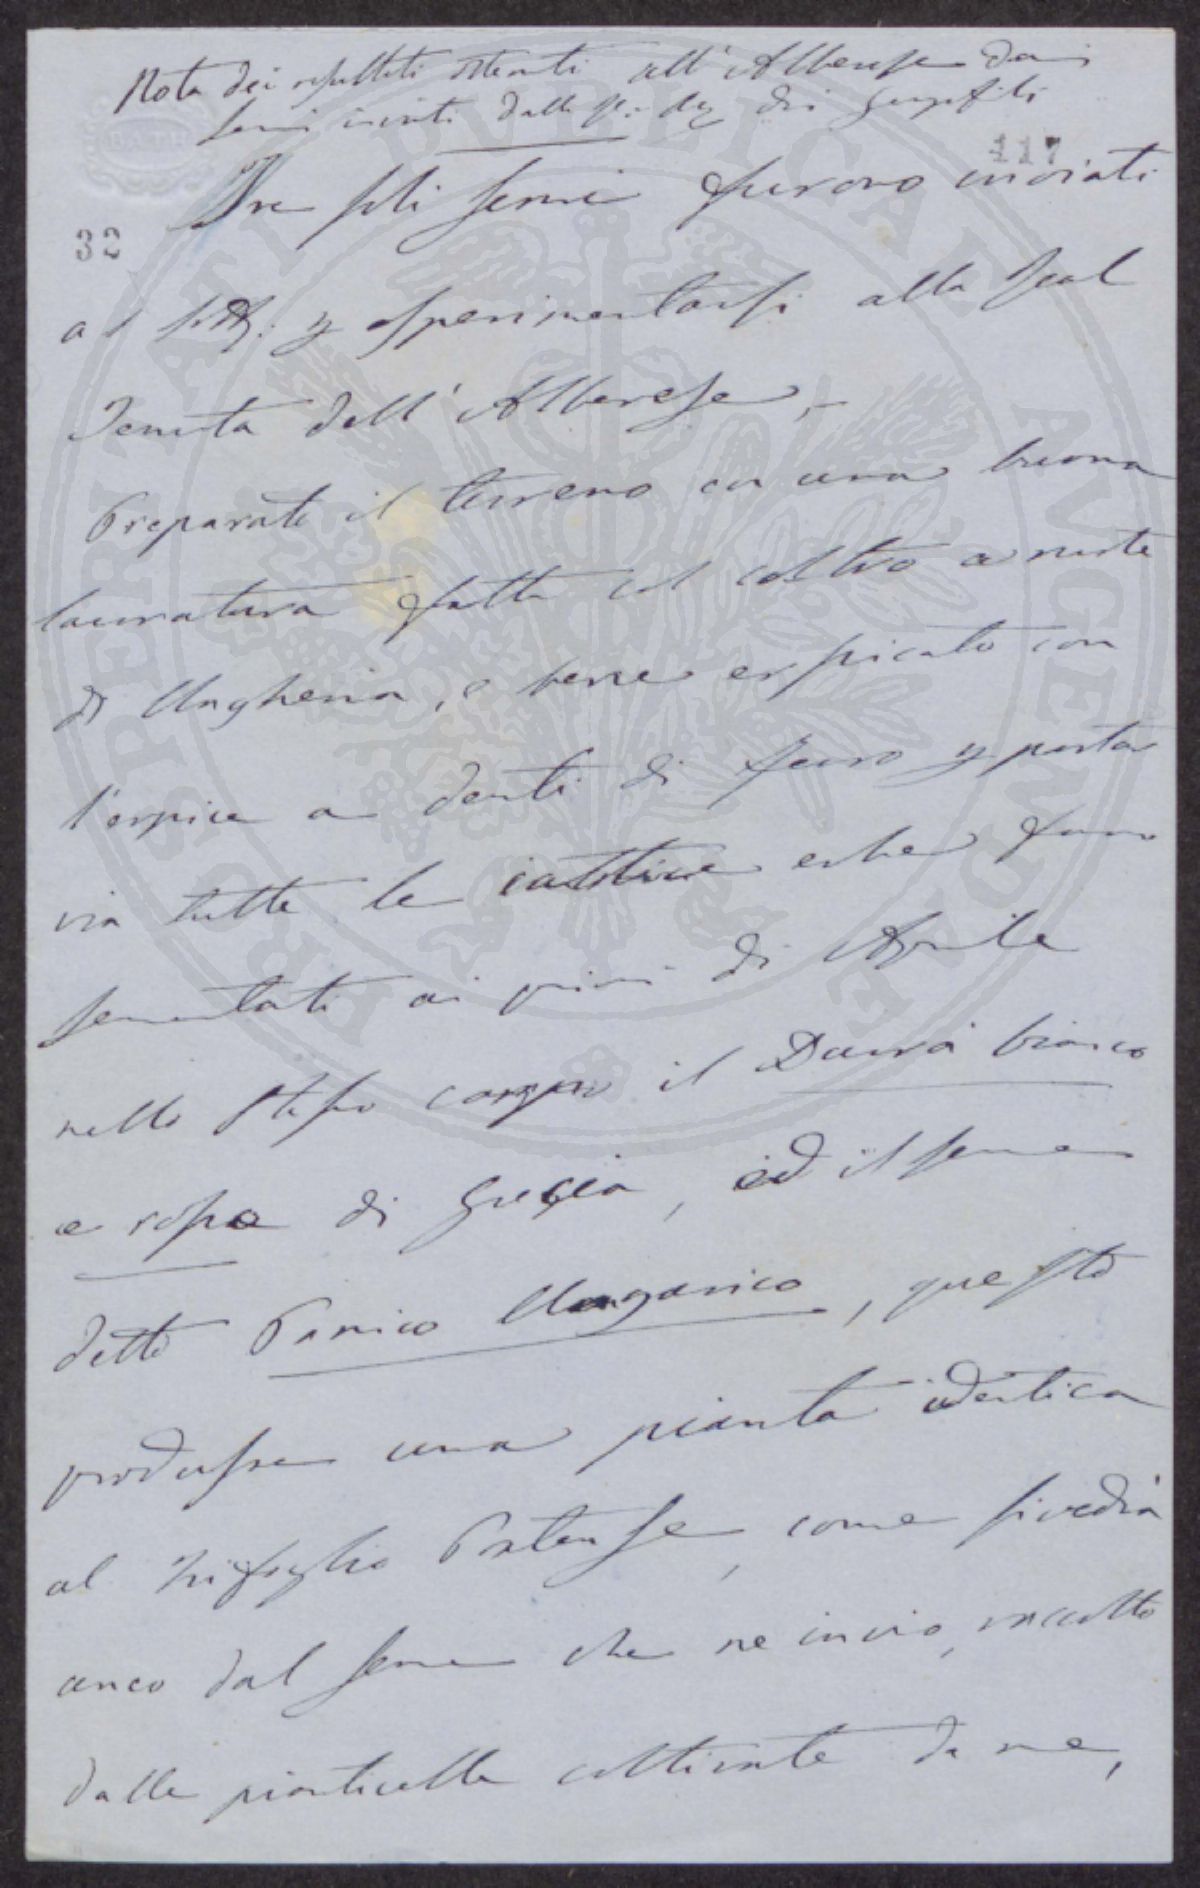 Nota dei resultati ottenuti all'Alberese dai
semi inviati dalla R. dei Georgofili
117
BATH
32
Tre soli semi furono inviati
al p esperimentarsi alla Real
Tenuta dell'Alberese,
Preparato il terreno con una buona
lavoratura fatta col coltro a ruote
di Ungheria, e bene erpicato con
l'erpice a denti di ferro p portar
via tutte le cattive erbe furono
sementati ai primi di Aprile
nello stesso campo il Durrà bianco
e rosso di Grecia, ed il seme
detto Panico Ungarico, questo
produsse una pianta identica
al Trifoglio Pratense, come si vedrà
anco dal seme che ne invio, raccolto
dalle pianticelle coltivate da me,
PROSPERITATI PVBLICAE AVGENDAE